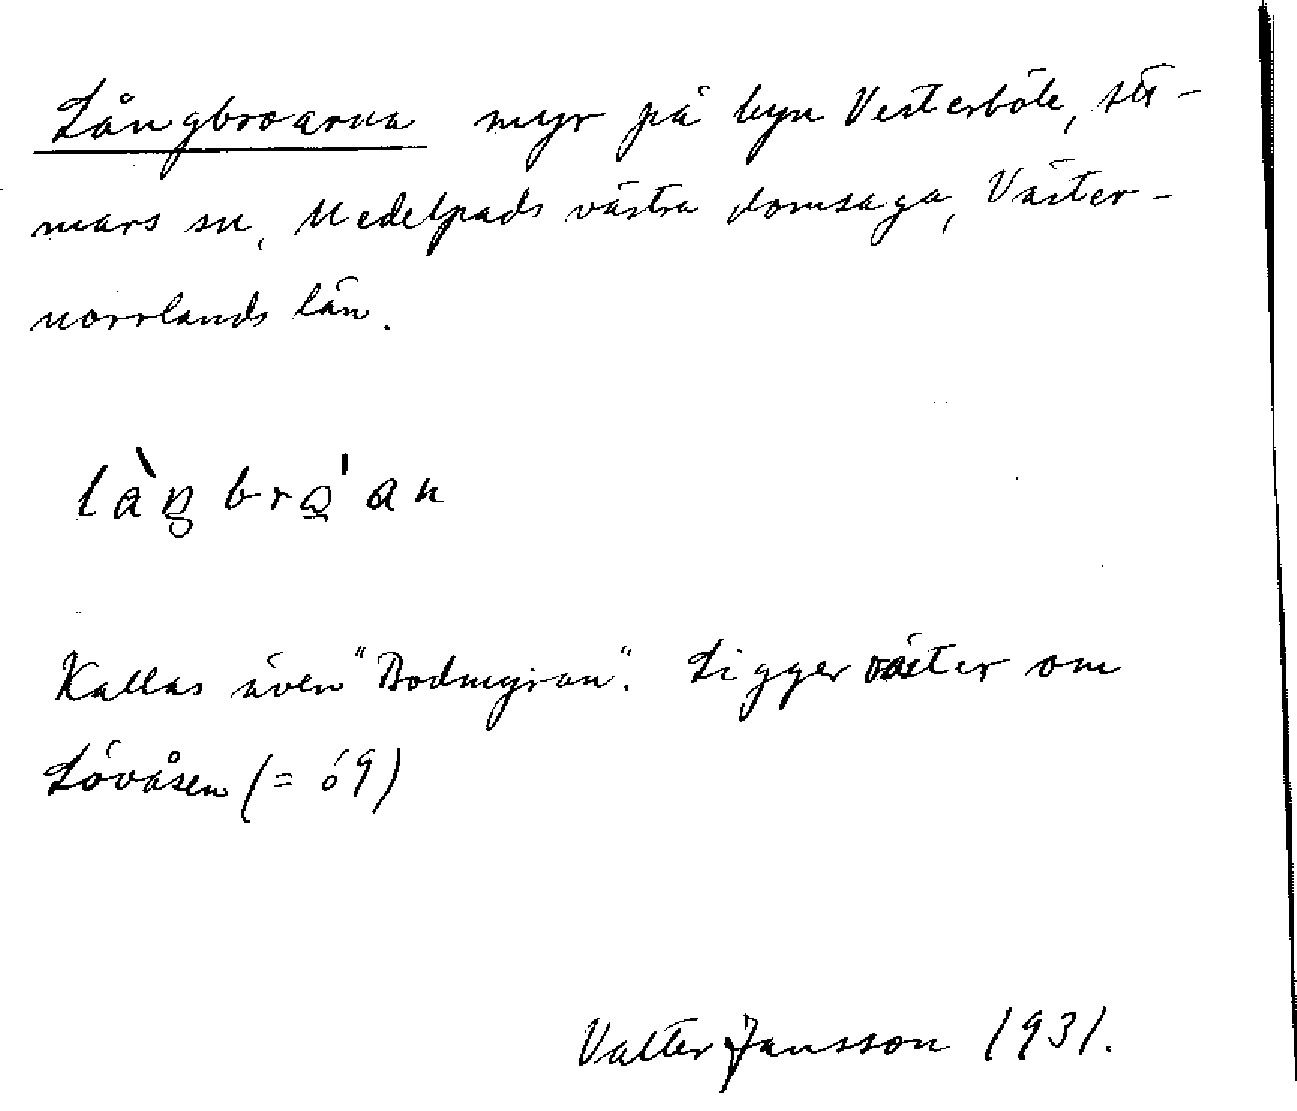 Långbroarna myr på byn Vesterböle, Att-
mars sn, Medelpads västra domsaga, Väster-
norrlands län.
làŋbrɷ̀'an
Kallas även "Bodmyran". Ligger väster om
Lövåsen (= 69)
Valter Jansson 1931.